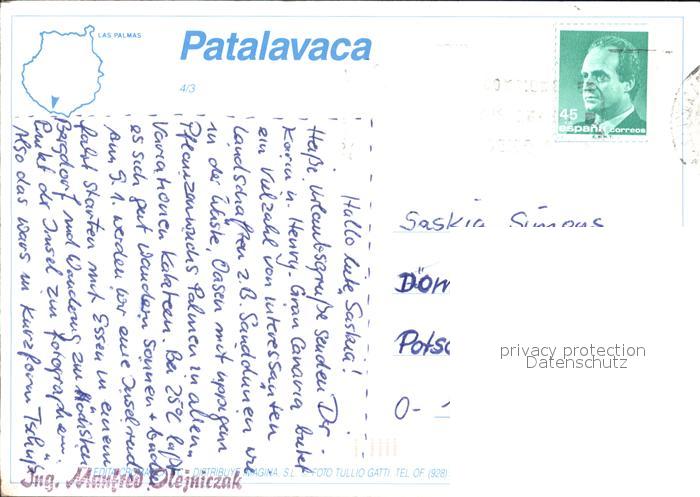 LAS PALMAS
Patalavaca
4/3
45
españa correos
Hallo liebe Saskia!
Heiße Urlaubsgrüße senden Dir
Karin u. Henry. Gran Canaria bietet
ein Vielzahl von interessanten
Landschaften z.B. Sanddünen wie
in der Wüste, Oasen mit üppigem
Pflanzenwuchs Palmen in allen
Variationen Kakteen. Bei 25°C läßt
es sich gut wandern sonnen +
Am 9.1. werden wir eine Inselrund
fahrt starten mit Essen in einem
Bergdorf und Wanderung zum Höchsten
Punkt der Insel zum fotographieren.
Also das wars in Kurzform Tschüß
Saskia Simons
Döm
Pots
O-
privacy protection
Datenschutz
DISTRIBUYE: MAGINA. S.L. © FOTO TULLIO GATTI. TEL. OF. (928)
Ing. Manfred Olejniczak